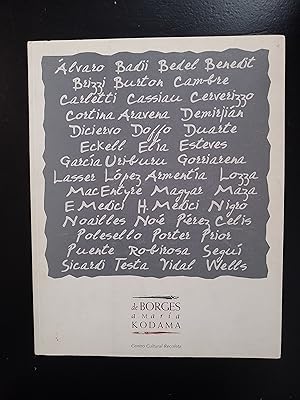 Álvaro Badii Bedel Benedit
Brizzi Burton Cambre
Carletti Cassiau Cerverizzo
Cortina Aravena Demirjián
Diciervo Doffo Duarte
Eckell Elía Esteves
García Uriburu Gorriarena
Lasser López Armentía Lozza
MacEntyre Magyar Maza
E. Médici H. Médici Nigro
Noailles Noé Pérez Celis
Polesello Porter Prior
Puente Robirosa Seguí
Sicardi Testa Vidal Wells
de BORGES
a María
KODAMA
Centro Cultural Recoleta